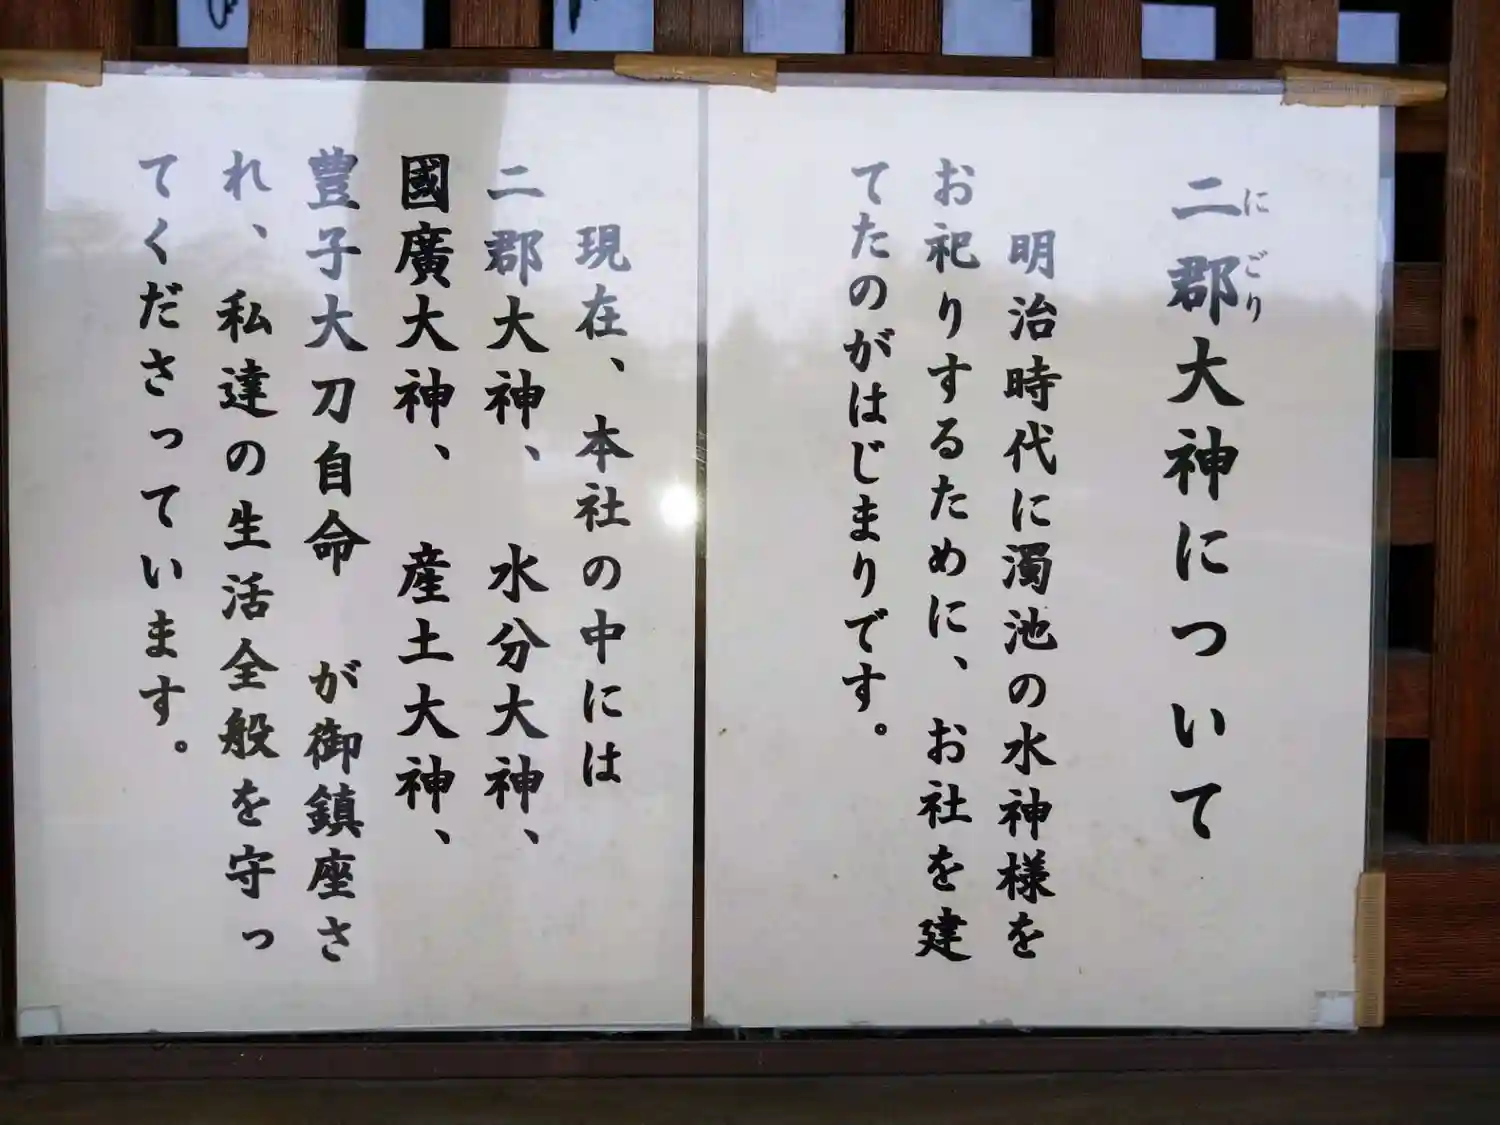 二郡大神について
にごり
明治時代に濁池の水神様を
お祀りするために、お社を建
てたのがはじまりです。
現在、本社の中には
二郡大神、水分大神、
國廣大神、産土大神、
豊子大刀自命　が御鎮座さ
れ、私達の生活全般を守っ
てくださっています。